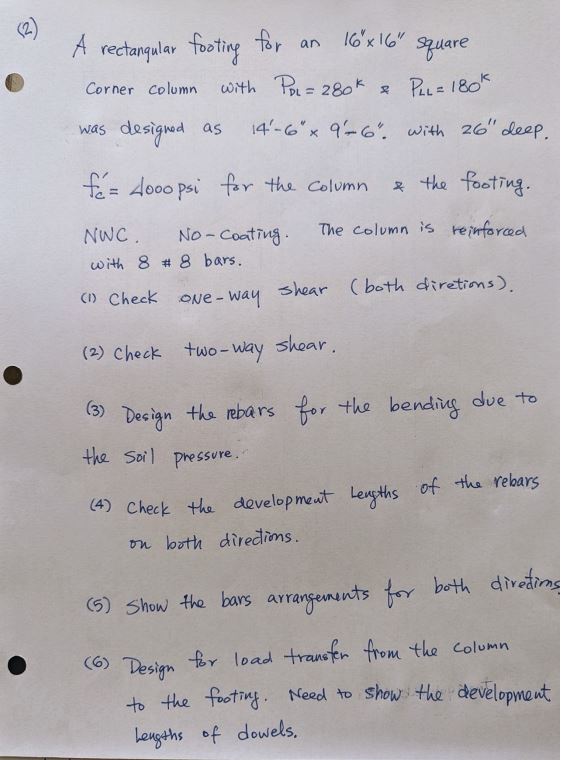 (2)
A rectangular footing for an 16"x16" square
corner column with PDL = 280K & PLL = 180K
was designed as 14'-6" x 9'-6". with 26" deep.
fc' = 4000psi for the column & the footing.
NWC. No-Coating. The column is reinforced
with 8 #8 bars.
(1) Check one-way shear (both diretions).
(2) Check two-way shear.
(3) Design the rebars for the bending due to
the soil pressure.
(4) Check the development Lengths of the rebars
on both directions.
(5) Show the bars arrangements for both directions
(6) Design for load transfer from the column
to the footing. Need to show the development
Lengths of dowels.